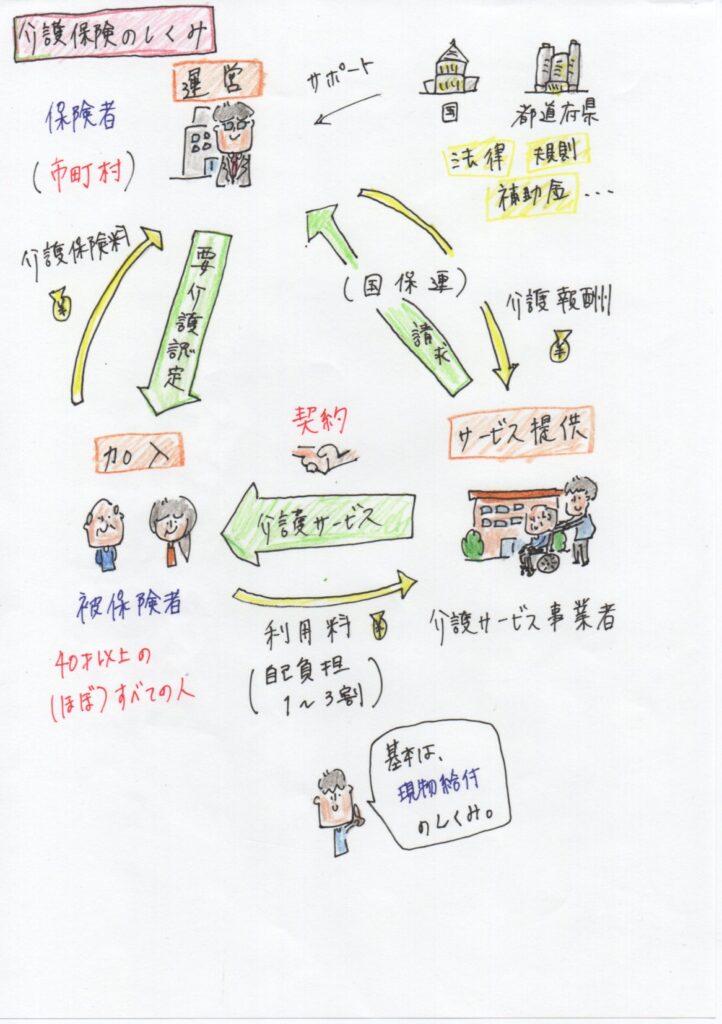 介護保険のしくみ
運営
保険者
(市町村)
サポート
国
都道府県
法律
規則
補助金...
介護保険料
¥
要介護認定
(国保連)
請求
介護報酬
¥
加入
契約
サービス提供
介護サービス
被保険者
40才以上の
(ほぼ)すべての人
利用料
¥
(自己負担
1〜3割)
介護サービス事業者
基本は、
現物給付
のしくみ。